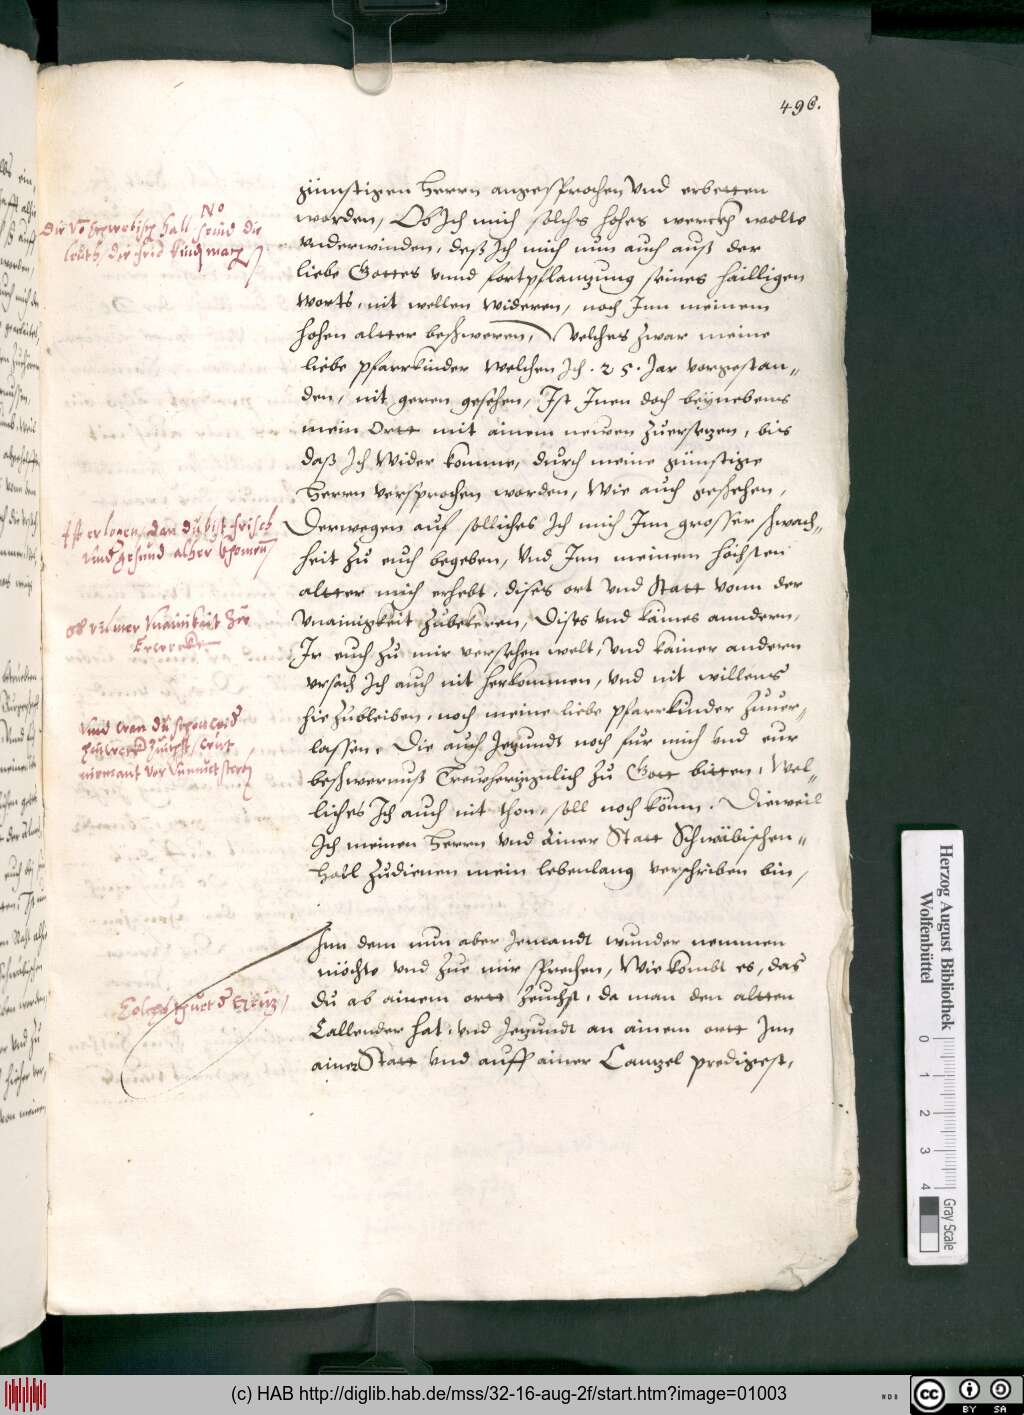 496.
günstigen Herrn angesprochen Vnd erbetten
worden, Ob Ich mich solchs hohes werckh wolte
vnderwinden, deß Ich mich nun auch auß der
liebe Gottes vnnd fortpflantzung seines hailligen
Worts, nit wellen wideren, noch Inn meinem
hohen altter beschweren, Welches zwar meine
liebe pfarrkinder welchen Ich .25. Jar vorgestan-
den, nit geren gesehen, Ist Inen doch beynebens
mein Ortt mit ainem newen zuersetzen, bis
daß Ich Wider komme, durch meine günstige
Herrn versprochen worden, Wie auch geschehen,
Derwegen auf solliches Ich mich Inn grosser schwach-
heit zu euch begeben, Vnd Inn meinem höchsten
altter mich erhebt, dises ort vnd Statt vonn der
Vnainigkeit zubekeren, Dises vnd kaines anndern,
Ir euch zu mir versehen welt, Vnd kainer andern
vrsach Ich auch nit herkommen, Vnd nit willens
hie zubleiben, noch meine liebe pfarrkinder zuuer-
lassen, Die auch Jetzundt noch für mich vnd eur
beschwernuß Trewhertziglich zu Gott bitten, Wel-
liches Ich auch nit thon, soll noch könn. Dieweil
Ich meinen Herrn vnd Ainer Statt Schwäbischen-
Hall zudienen mein lebenlang verschriben bin,
Inn dem nun aber Jemandt wunder nemmen
möchte vnd zue mir sprechen, Wie kombt es, das
du ab ainem ortt zeuchst, da man den altten
Callender hat, vnd Jetzundt an ainem ortt Inn
ainer Statt vnd auff ainer Cantzel predigest,
No
Ist erlogen, dan du bist frisch
vnd gesund alher khomen
Herzog August Bibliothek
Wolfenbüttel
0 1 2 3 4
Gray Scale
(c) HAB http://diglib.hab.de/mss/32-16-aug-2f/start.htm?image=01003
cc
BY SA